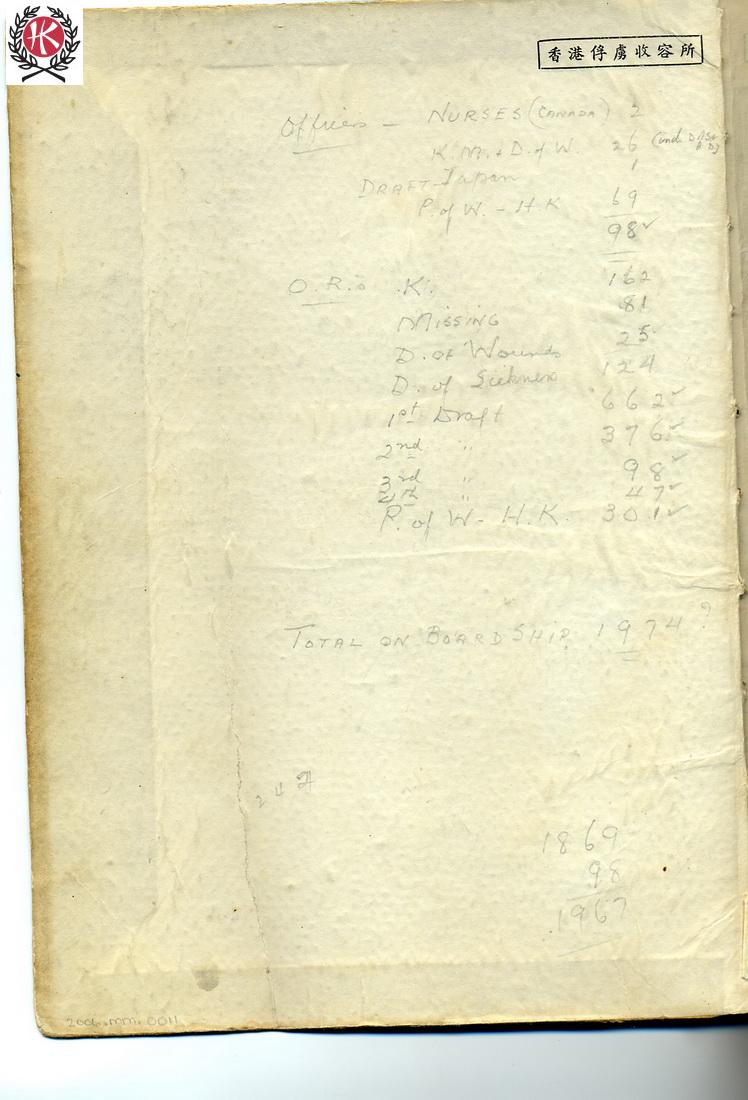 HK
香港俘虜收容所
Officers – NURSES (CANADA) 2
K.M. + D. of W. 26 (incl
DRAFT Japan 1
P. of W. – H.K 69
98✓
O.R.s K. 162
MISSING 81
D. OF Wounds 25
D. of Sickness 124
1st Draft 662✓
2nd " 376✓
3rd " 98✓
4th " 47✓
P. of W – H.K. 301✓
TOTAL ON BOARD SHIP. 1974 ?
247
1869
98
1967
2006.mm.0011